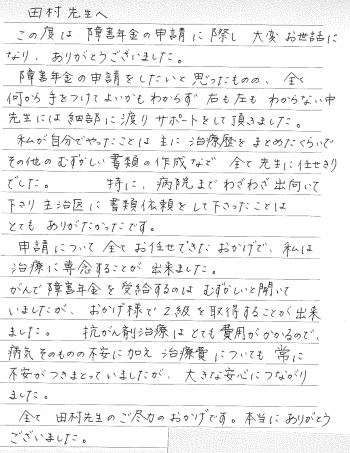 田村先生へ
この度は 障害年金の申請に際し 大変お世話に
なり、ありがとうございました。
障害年金の申請をしたいと思ったものの、全く
何から手をつけてよいかもわからず 右も左も わからない中
先生には細部に渡りサポートをして頂きました。
私が自分でやったことは 主に 治療歴をまとめたくらいで
その他のむずかしい書類の作成など 全て先生に任せきり
でした。 特に、病院まで わざわざ出向いて
下さり 主治医に 書類依頼を して下さったことは
とても ありがたかったです。
申請について 全て お任せできた おかげで、私は
治療に専念することが 出来ました。
がんで障害年金を受給するのは むずかしいと聞いて
いましたが、おかげ様で 2級を取得することが出来
ました。 抗がん剤治療は とても費用がかかるので、
病気そのものの不安に加え 治療費についても 常に
不安がつきまとっていましたが、大きな安心につながり
ました。
全て 田村先生のご尽力のおかげです。本当に ありがとう
ございました。